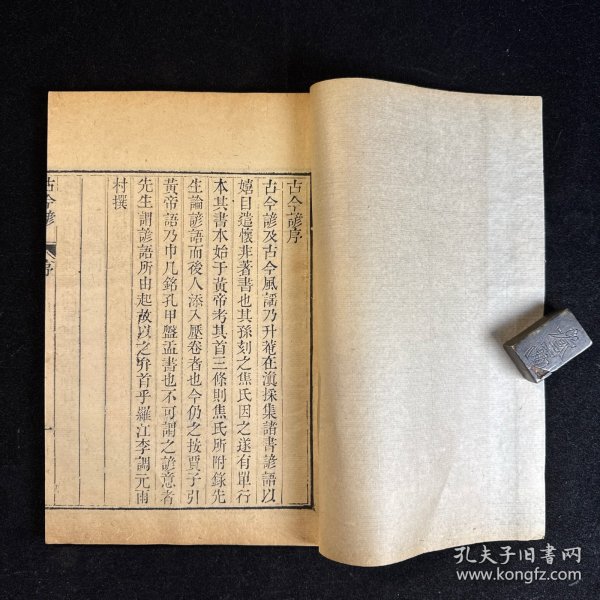 古今諺序
古今諺及古今風謠乃升菴在滇採集諸書諺語以
嬉日遣懷非著書也其孫刻之焦氏因之遂有單行
本其書本始于黃帝考其首三條則焦氏所附錄先
生論諺語而後人添入壓卷者也今仍之按賈子引
黃帝語乃巾几銘孔甲盤盂書也不可謂之諺意者
先生謂諺語所由起故以之弁首乎羅江李調元雨
村撰
古今諺
序
孔夫子旧书网
www.kongfz.com